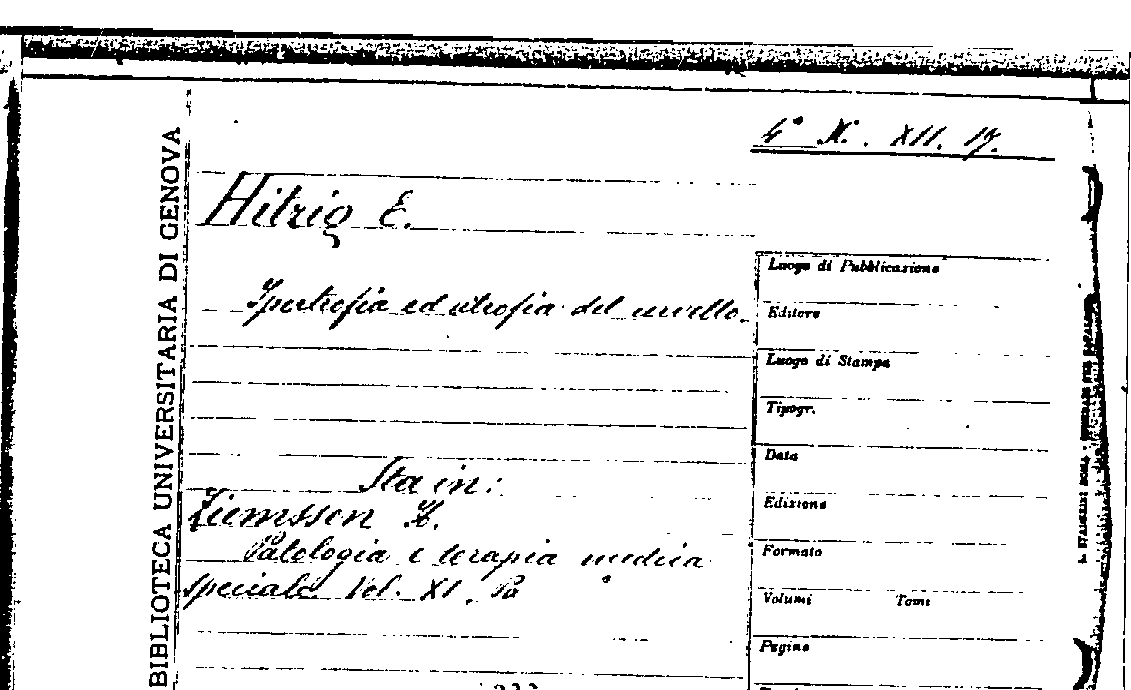 BIBLIOTECA UNIVERSITARIA DI GENOVA
4° N. XII. 17.
Hitzig E.
Ipertrofia ed atrofia del cervello.
Sta in:
Ziemssen H.
Patologia e terapia medica
speciale Vol. XI. Pa
Luogo di Pubblicazione
Editore
Luogo di Stampa
Tipogr.
Data
Edizione
Formato
Volumi Tomi
Pagine